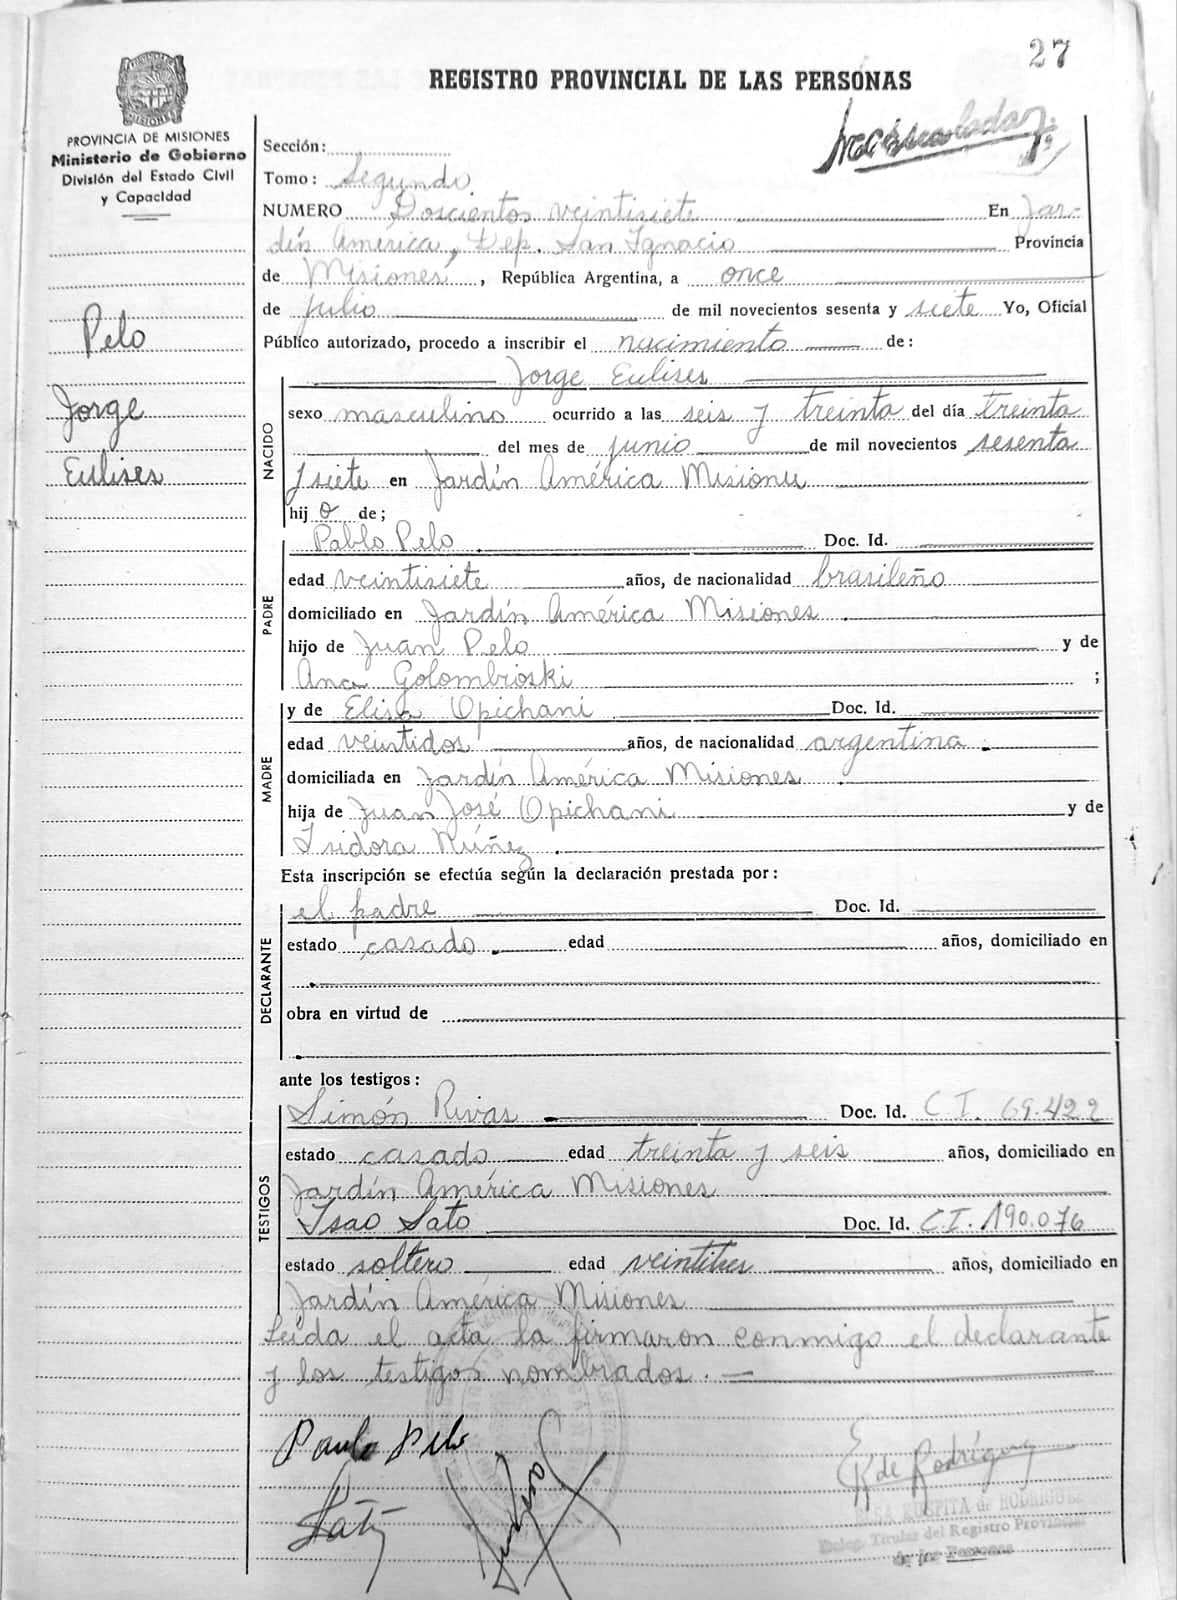 27
REGISTRO PROVINCIAL DE LAS PERSONAS
PROVINCIA DE MISIONES
Ministerio de Gobierno
División del Estado Civil
y Capacidad
Sección:
Tomo: Segundo
NUMERO Doscientos veintisiete En Jar-
dín América, Dep. San Ignacio Provincia
de Misiones, República Argentina, a once
de julio de mil novecientos sesenta y siete Yo, Oficial
Público autorizado, procedo a inscribir el nacimiento de:
Pelo
Jorge
Eulises
Jorge Eulises
NACIDO
sexo masculino ocurrido a las seis y treinta del día treinta
del mes de junio de mil novecientos sesenta
y siete en Jardín América Misiones
hijo de;
PADRE
Pablo Pelo. Doc. Id.
edad veintisiete años, de nacionalidad brasileño
domiciliado en Jardín América Misiones.
hijo de Juan Pelo y de
Ana Golombioski ;
MADRE
y de Elisa Opichani Doc. Id.
edad veintidos años, de nacionalidad argentina.
domiciliada en Jardín América Misiones.
hija de Juan José Opichani y de
Isidora Núñez.
Esta inscripción se efectúa según la declaración prestada por:
DECLARANTE
el padre Doc. Id.
estado casado. edad años, domiciliado en
obra en virtud de
ante los testigos:
TESTIGOS
Simón Rivas. Doc. Id. C I. 69.422
estado casado edad treinta y seis años, domiciliado en
Jardín América Misiones
Isao Sato Doc. Id. C I. 190.076
estado soltero edad veintitres años, domiciliado en
Jardín América Misiones
Leida el acta la firmaron conmigo el declarante
y los testigos nombrados.
Paulo Pelo
E R de Rodríguez
Sato
RUSPITA de RODRIGUEZ
Deleg. Titular del Registro Provincial
de las Personas